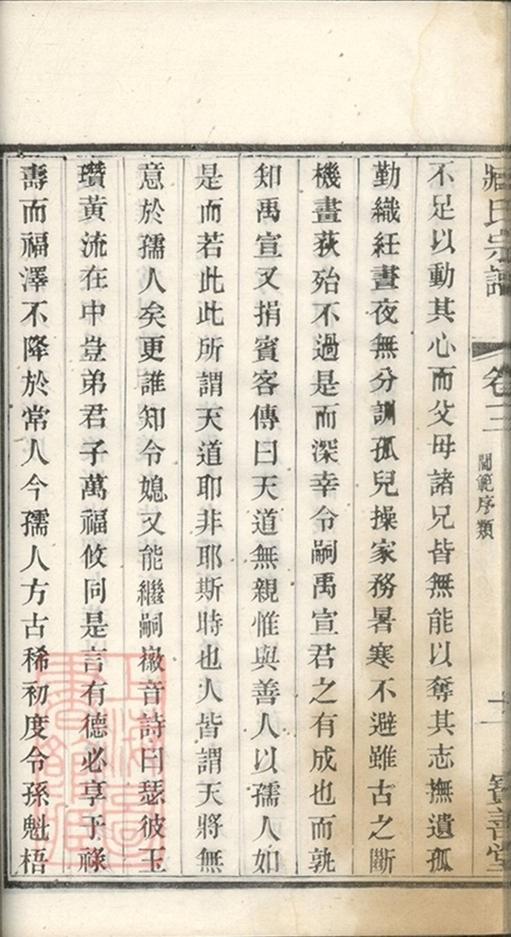 臧氏宗譜 卷三 閫範序類 十一 寳善堂
不足以動其心而父母諸兄皆無能以奪其志撫遺孤
勤織紝晝夜無分訓孤兒操家務暑寒不避雖古之斷
機畫荻殆不過是而深幸令嗣禹宣君之有成也而孰
知禹宣又捐賓客傳曰天道無親惟與善人以孺人如
是而若此此所謂天道耶非耶斯時也人皆謂天將無
意於孺人矣更誰知令媳又能繼嗣徽音詩曰瑟彼玉
瓚黃流在中豈弟君子萬福攸同是言有德必享于祿
壽而福澤不降於常人今孺人方古稀初度令孫魁梧
上海圖書館藏